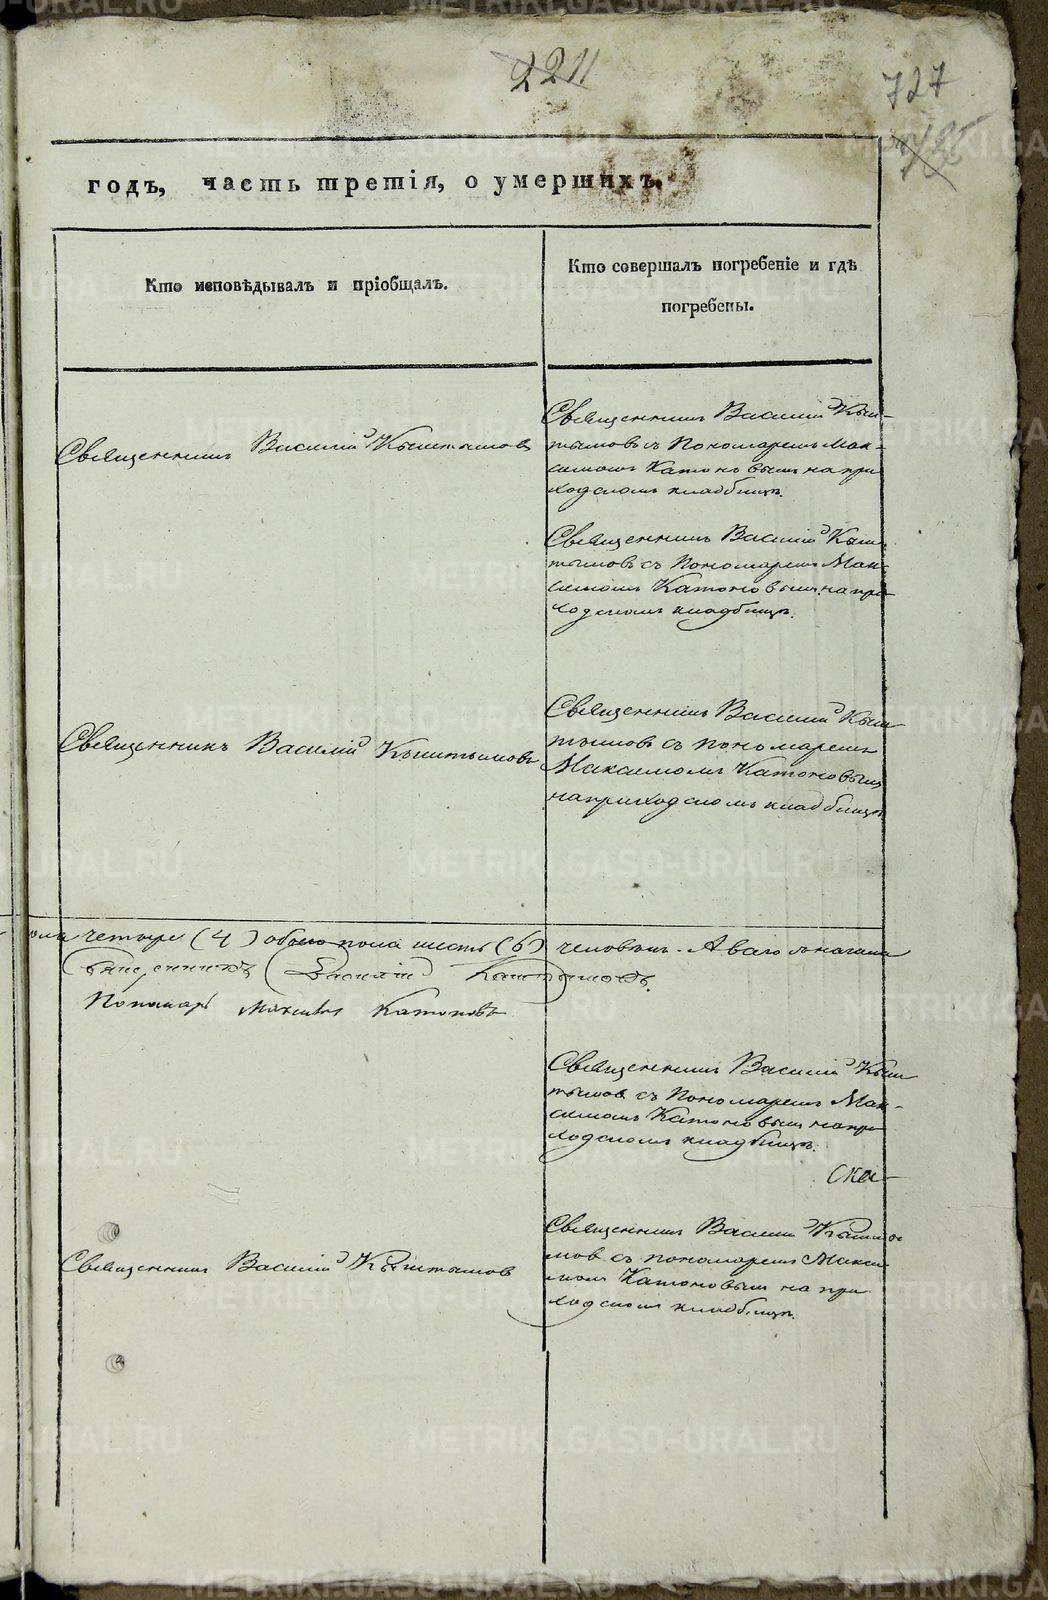 2211
727
годъ, часть третія, о умершихъ.
Кто исповѣдывалъ и пріобщалъ.
Кто совершалъ погребеніе и гдѣ
погребены.
Священникъ Василій Кыштымовъ
Священникъ Василій Кыш-
тымовъ съ Пономаремъ Мак-
симомъ Катоновымъ на при
ходскомъ кладбищѣ.
Священникъ Василій Кыш-
тымовъ съ Пономаремъ Мак-
симомъ Катоновымъ на при
ходскомъ кладбищѣ.
Священникъ Василій Кыштымовъ
Священникъ Василій Кыш
тымовъ съ пономаремъ
Максимомъ Катоновымъ
на приходскомъ кладбищѣ
пола четыре (4) обоего пола шесть (6) человѣкъ.
Священникъ Василій Кыштымовъ.
Пономарь Максимъ Катоновъ
Священникъ Василій Кыш
тымов съ Пономаремъ Мак-
симомъ Катоновымъ на при
ходскомъ кладбищѣ.
Ска-
Священникъ Василій Кыштымов
Священникъ Василій Кышты
мов съ пономаремъ Макси
момъ Катоновымъ на при
ходскомъ кладбищѣ.
METRIKI.GASO-URAL.RU